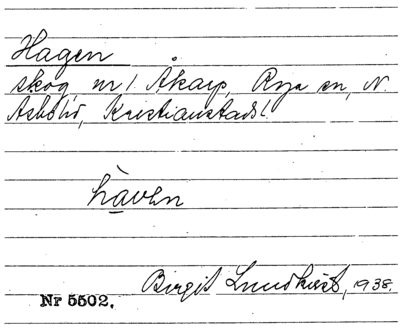 Hagen
skog nr 1 Åkarp, Röja sn, N.
Åsbo hd, Kristianstads l.
hāvhn
Birgit Lundkvist, 1938.
Nr 5502.